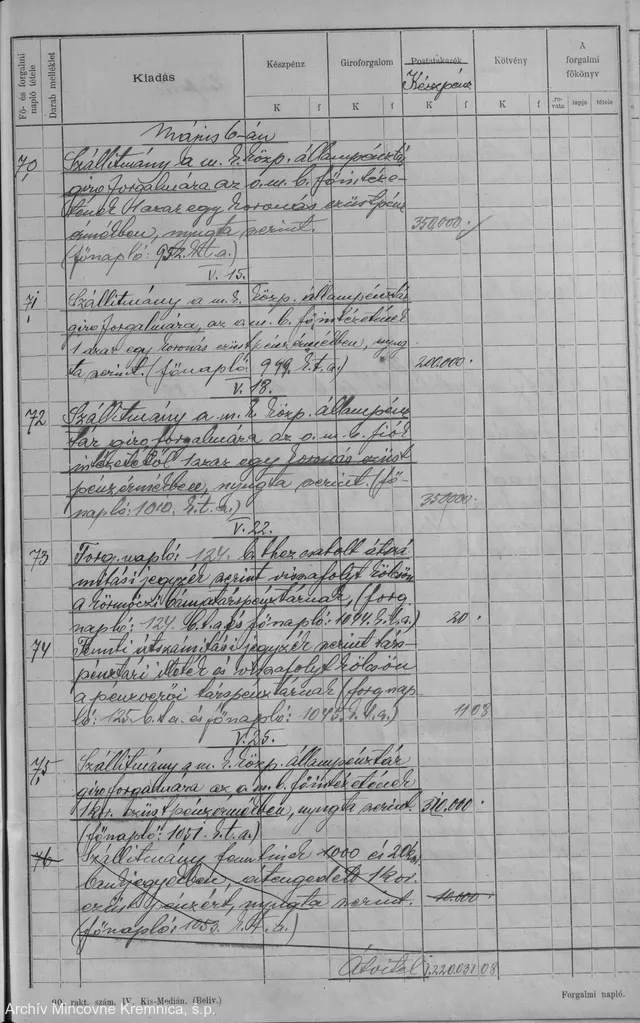 Fő- és forgalmi napló tétele
Darab melléklet
Kiadás
Készpénz
Giroforgalom
Postatakarék
Készpénz
Kötvény
A forgalmi főkönyv
K f K f K f K f rovata lapja tétele
Május 6-án
70 Szállitmány a m. k. közp. állampénztár
giro forgalmára az o. m. b. főintéze-
tének 1 azaz egy koronás ezüstpénz
érmékben, nyugta szerint. 350.000.
(főnapló: 952. k.t.a.)
V. 15.
71 Szállitmány a m. k. közp. állampénztár
giro forgalmára, az o. m. b. főintézetének
1 azaz egy koronás ezüst pénzérmékben, nyug-
ta szerint. (főnapló: 999. k.t.a.) 200.000.
V. 18.
72 Szállitmány a m. k. közp. állampénz
tár giro forgalmára az o. m. b. fiók
intézetétől 1 azaz egy koronás ezüst
pénzérmékben, nyugta szerint. (fő-
napló: 1010. k.t.a.) 350.000.
V. 22.
73 Forg. napló: 124. b. thez csatolt átszá
mitási jegyzék szerint visszafolyt kölcsön
a körmöczi bányatárspénztárnak, (forg.
napló: 124. b.t.a. és főnapló: 1044. k.t.a.) 20.
74 Fenti átszámitási jegyzék szerint társ-
pénztári illeték és visszafolyt kölcsön
a pénzverői társpénztárnak (forg. nap-
ló: 125. b.t.a. és főnapló: 1045. k.t.a.) 11 08
V. 25.
75 Szállitmány a m. k. közp. állampénztár
giro forgalmára az o. m. b. főintézetének
1 kor. ezüst pénzérmékben, nyugta szerint. 310.000.
(főnapló: 1051. k.t.a.)
76 Szállitmány fentinek 1000 és 20 kor.
bankjegyekben, átengedett 1 kor.
ezüst pénzért, nyugta szerint. 10.000
(főnapló: 1053. k.t.a.)
Átvitel 1.220.031 08
20. rakt. szám. IV. Kis-Medián. (Beliv.)
Forgalmi napló.
Archív Mincovne Kremnica, š.p.